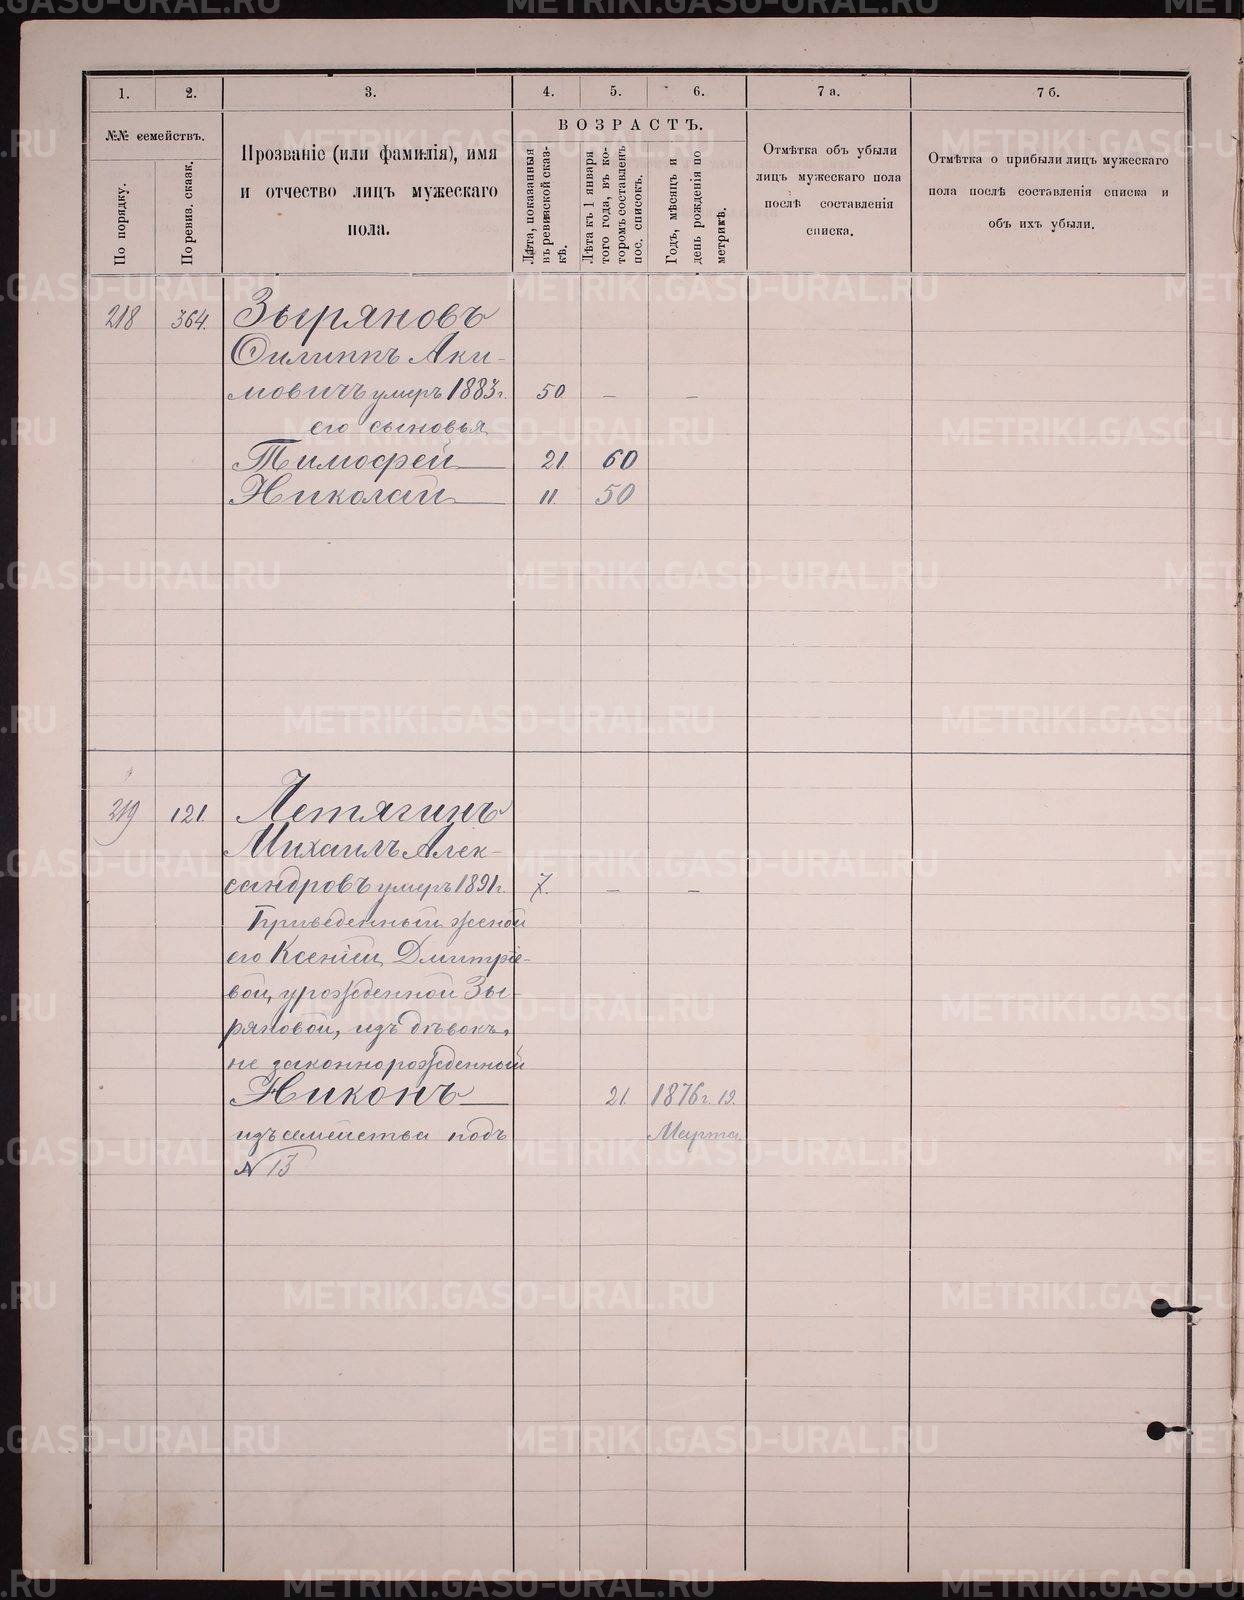 1. 2. 3. 4. 5. 6. 7 а. 7 б.
№№ семействъ.
По порядку.
По ревиз. сказк.
Прозваніе (или фамилія), имя
и отчество лицъ мужескаго
пола.
ВОЗРАСТЪ.
Лѣта, показанныя
въ ревизской сказ-
кѣ.
Лѣта къ 1 января
того года, въ ко-
торомъ составленъ
пос. списокъ.
Годъ, мѣсяцъ и
день рожденія по
метрикѣ.
Отмѣтка объ убыли
лицъ мужескаго пола
послѣ составленія
списка.
Отмѣтка о прибыли лицъ мужескаго
пола послѣ составленія списка и
объ ихъ убыли.
218 364. Зыряновъ
Филиппъ Аки-
мовичъ умеръ 1883 г. 50 – –
его сыновья
Тимофей 21 60
Николай 11. 50
219 121. Летягинъ
Михаилъ Алек-
сандровъ умеръ 1891 г. 7. – –
Приведенный женой
его Ксеніей Дмитріе-
вой, урожденной Зы-
ряновой, изъ дѣвокъ,
не законнорожденный
Никонъ 21. 1876 г. 19.
изъ семейства подъ Марта.
№ 13
METRIKI.GASO-URAL.RU